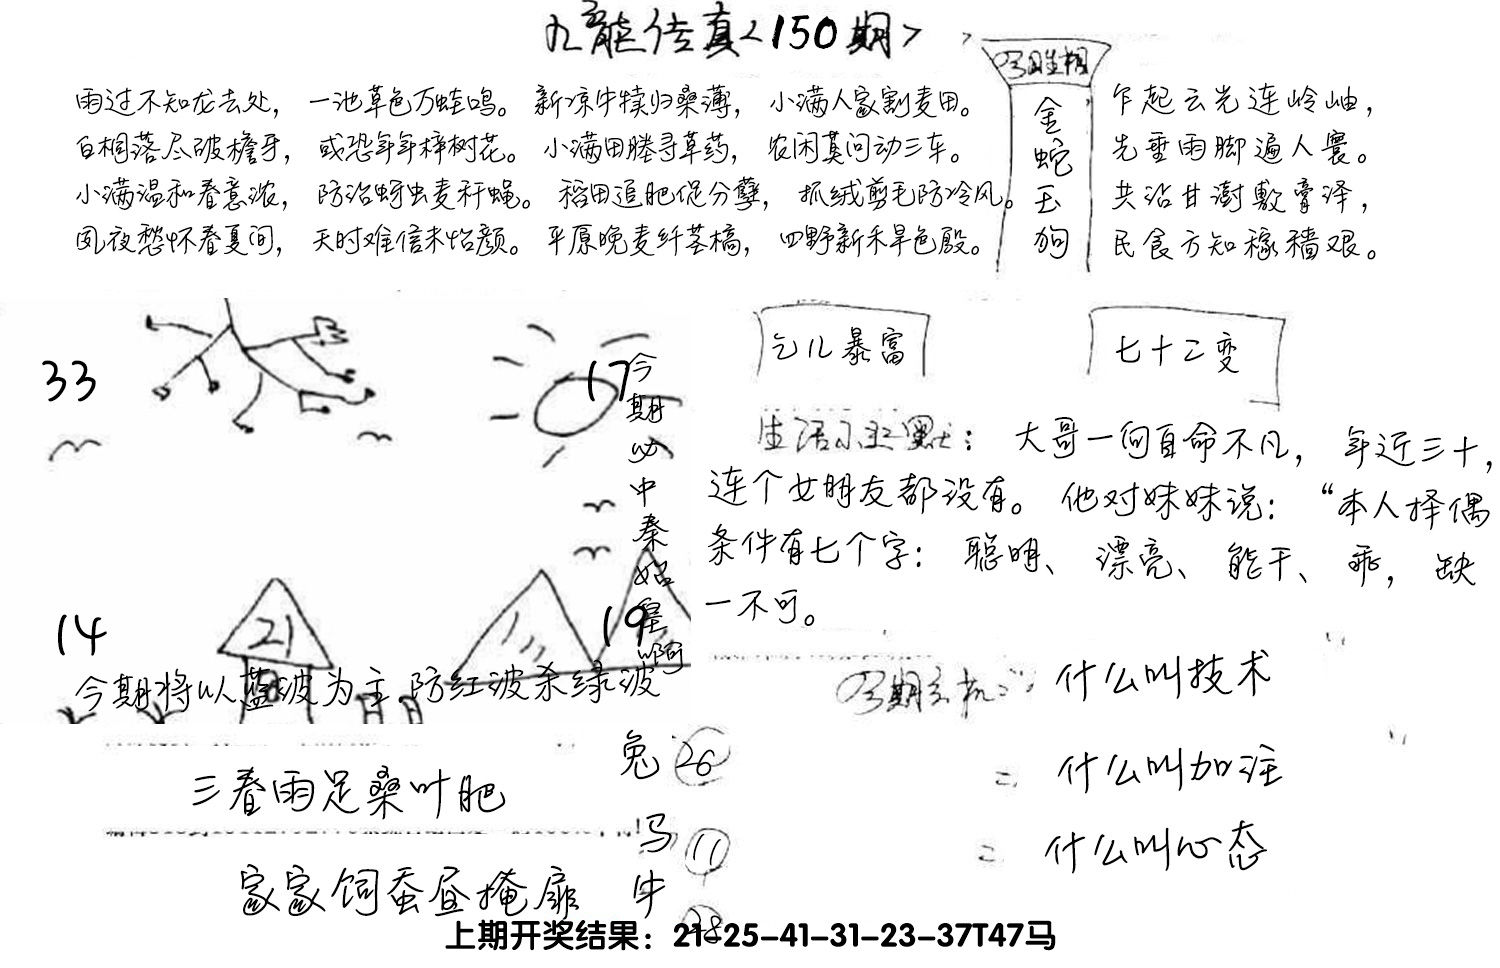 九龍传真<150期>
雨过不知龙去处，一池草色万蛙鸣。新凉牛犊归桑薄，小满人家割麦田。
白桐落尽破檐牙，或恐年年梓树花。小满田塍寻草药，农闲莫问动三车。
小满温和春意浓，防治蚜虫麦秆蝇。稻田追肥促分孽，抓绒剪毛防冷风。
夙夜愁怀春夏间，天时难信未怡颜。平原晚麦纤茎槁，四野新禾旱色殷。
金
蛇
玉
狗
乍起云光连岭岫，
先垂雨脚遍人寰。
共沾甘澍敷膏泽，
民食方知稼穑艰。
33
17
14
21
19
今期必中秦始皇啊
今期将以蓝波为主.防红波杀绿波
三春雨足桑叶肥
家家饲蚕昼掩扉
兔 26
马 11
牛 28
乞儿暴富
七十二变
生活小幽默：大哥一向自命不凡，年近三十，
连个女朋友都没有。他对妹妹说：“本人择偶
条件有七个字：聪明、漂亮、能干、乖，缺
一不可。
今期玄机
什么叫技术
什么叫加注
什么叫心态
上期开奖结果：21-25-41-31-23-37T47马